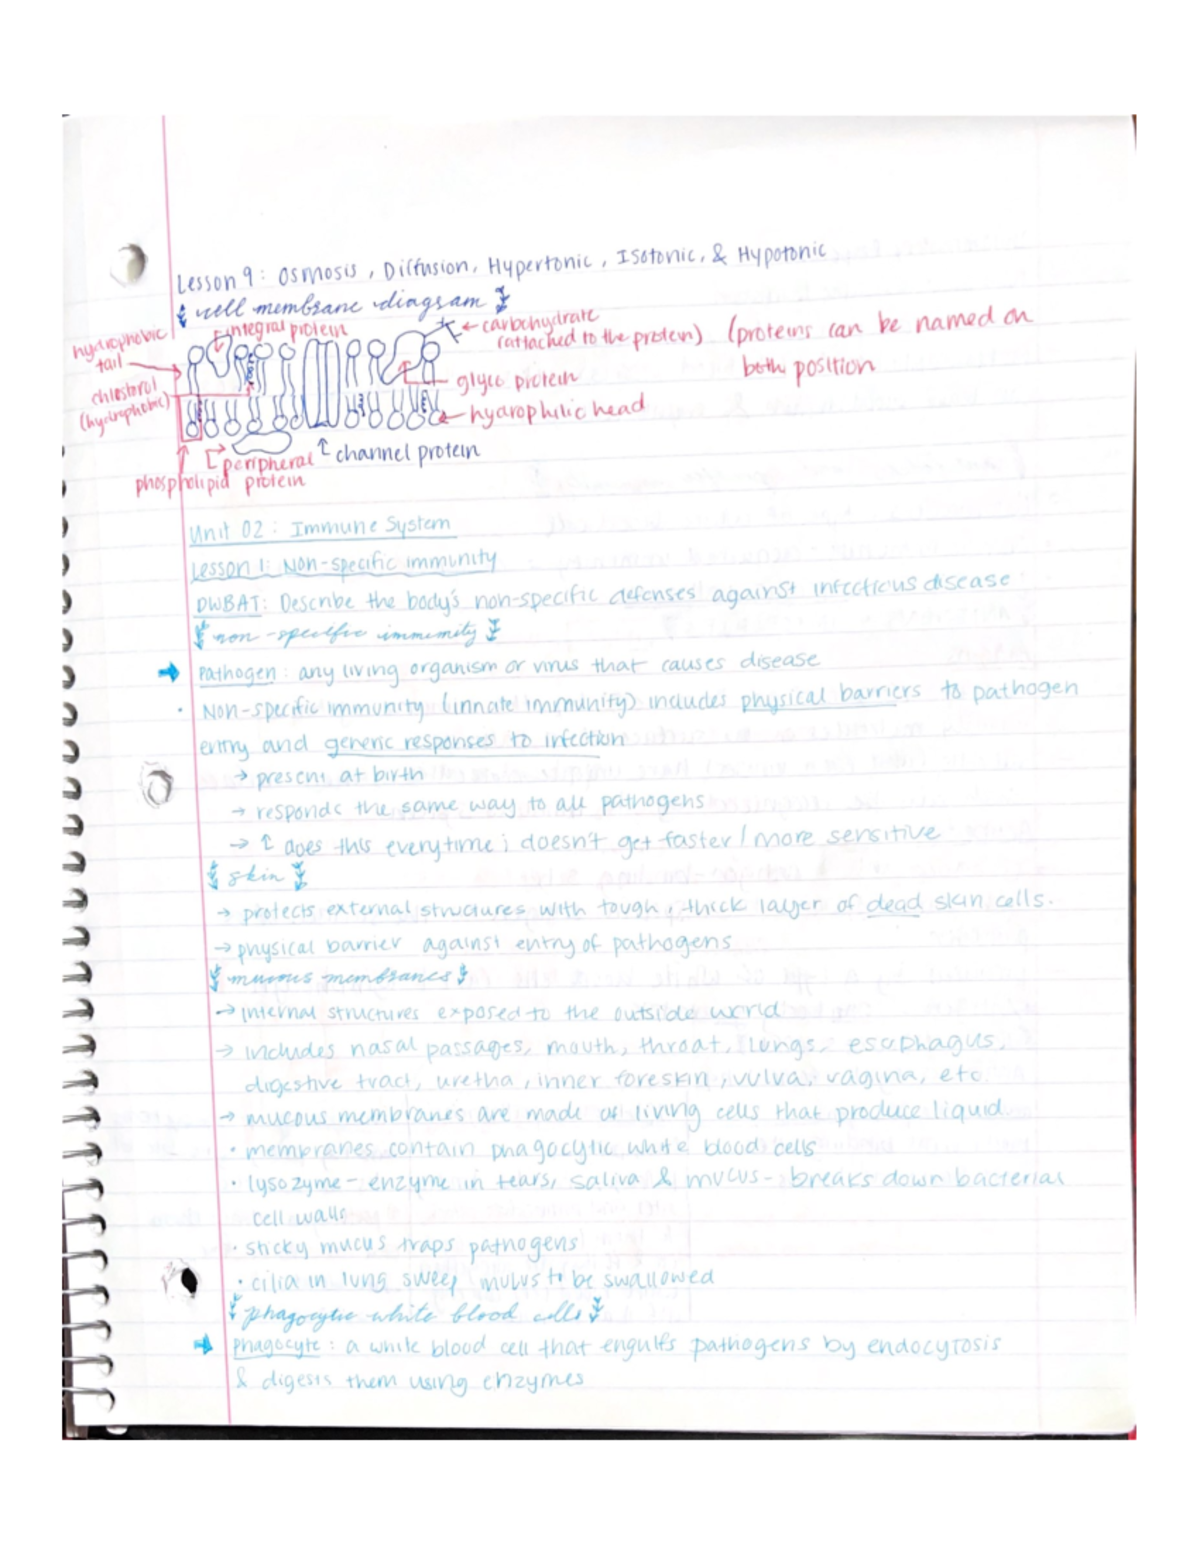 Lesson 9: Osmosis, Diffusion, Hypertonic, Isotonic, & Hypotonic
cell membrane diagram
hydrophobic
tail
integral protein
carbohydrate
(attached to the protein)
(proteins can be named on
both position
chlostorol
(hydrophobic)
glyco protein
hydrophilic head
↑ channel protein
peripheral
protein
phospholipid
Unit 02: Immune System
Lesson 1: Non-specific immunity
DWBAT: Describe the body's non-specific defenses against infectious disease
non-specific immunity
→ Pathogen: any living organism or virus that causes disease
• Non-specific immunity (innate immunity) includes physical barriers to pathogen
entry and generic responses to infection
→ present at birth
→ responds the same way to all pathogens
→ ↑ does this everytime; doesn't get faster/more sensitive
skin
→ protects external structures with tough, thick layer of dead skin cells.
→ physical barrier against entry of pathogens
mucous membranes
→ internal structures exposed to the outside world
→ includes nasal passages, mouth, throat, lungs, esophagus,
digestive tract, uretha, inner foreskin, vulva, vagina, etc.
→ mucous membranes are made of living cells that produce liquid
• membranes contain phagocytic white blood cells
• lysozyme - enzyme in tears, saliva & mucus - breaks down bacterial
cell walls
• sticky mucus traps pathogens
• cilia in lung sweep mucus to be swallowed
phagocytic white blood cells
→ Phagocyte: a white blood cell that engulfs pathogens by endocytosis
& digests them using enzymes